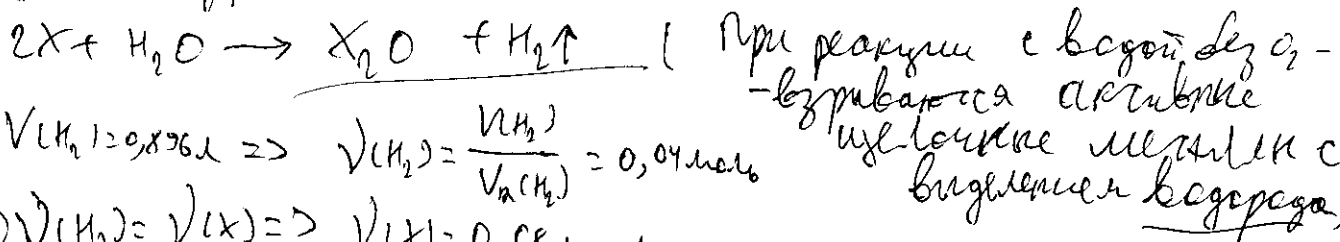 2X + H₂O → X₂O + H₂↑ ( При реакции с водой без O₂ -
- взрываются активные
щелочные металлы с
выделением водорода
V(H₂) = 0,896 л => ν(H₂) = V(H₂) / Vm(H₂) = 0,04 моль
ν(H₂) = ν(X) => ν(X) =